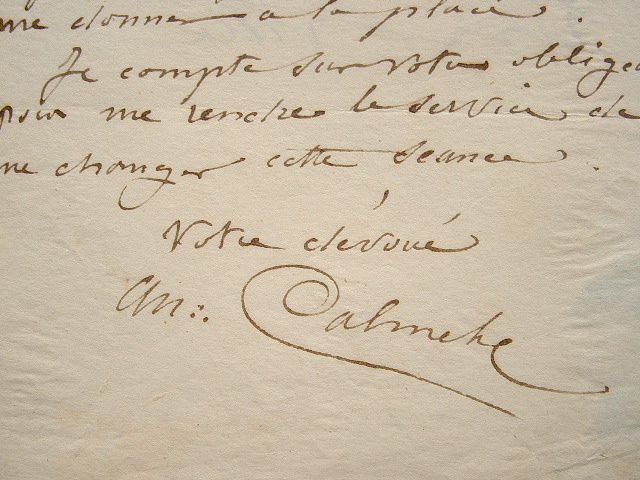 me donner a la place.
Je compte sur votre oblige
pour me rendre le service de
me changer cette seance.
Votre dévoué
An: Calmels